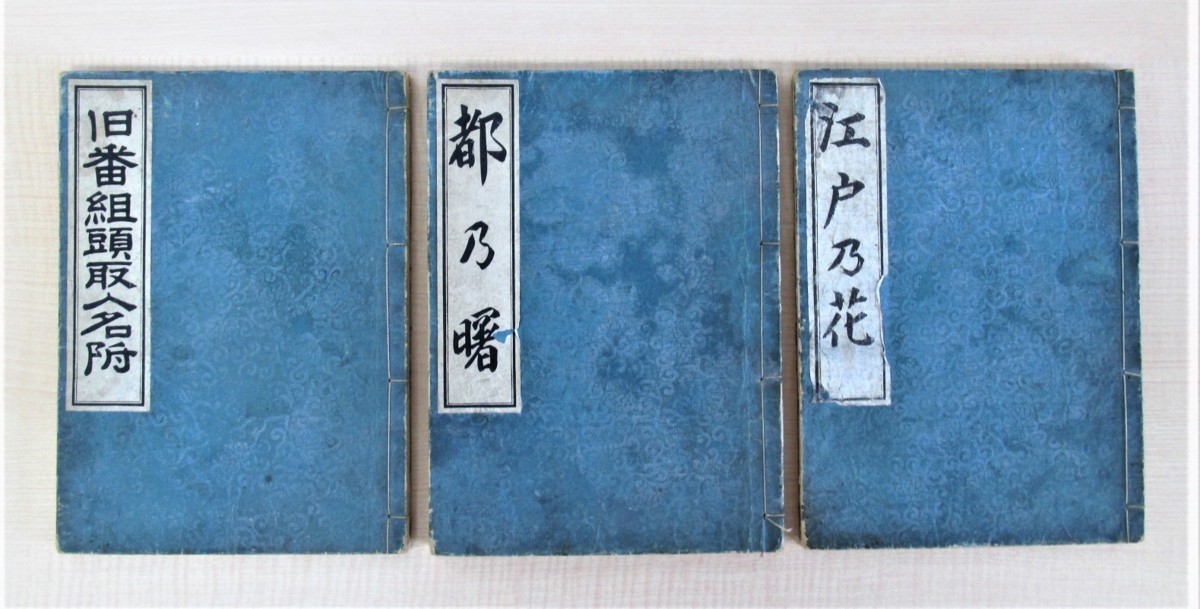 江戸乃花
都乃曙
旧番組頭取人名附